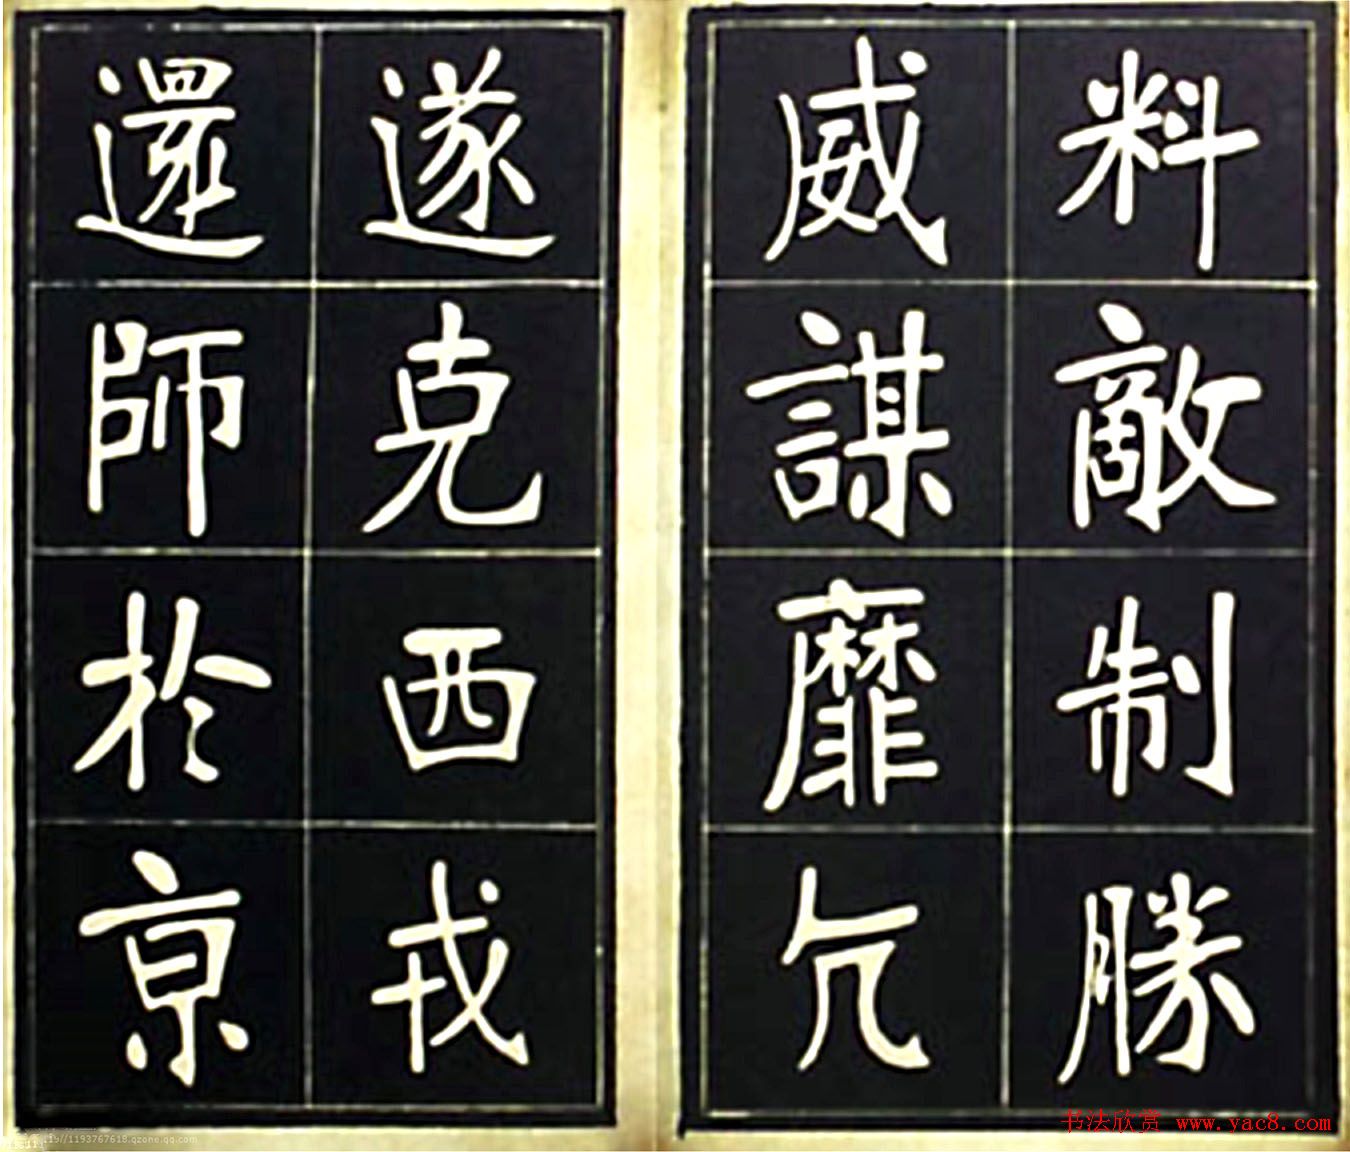 料敵制勝
威謀靡亢
遂克西戎
還師於京
书法欣赏 www.yac8.com
//1193767618.qzone.qq.com